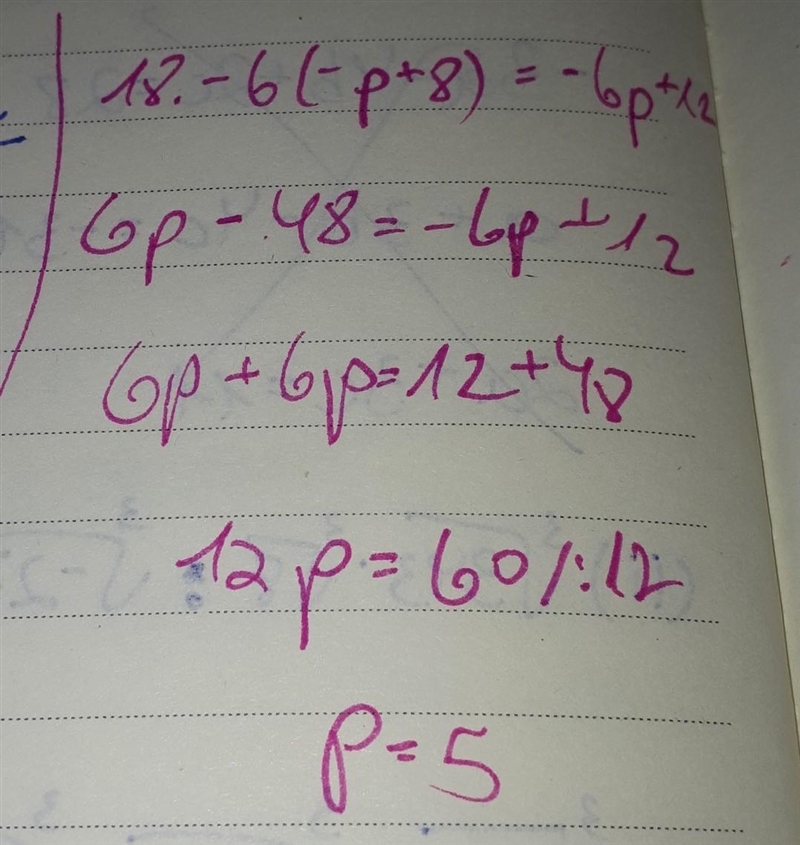 18. -6(-p+8) = -6p+12
6p - 48 = -6p + 12
6p + 6p = 12 + 48
12p = 60 /:12
p = 5